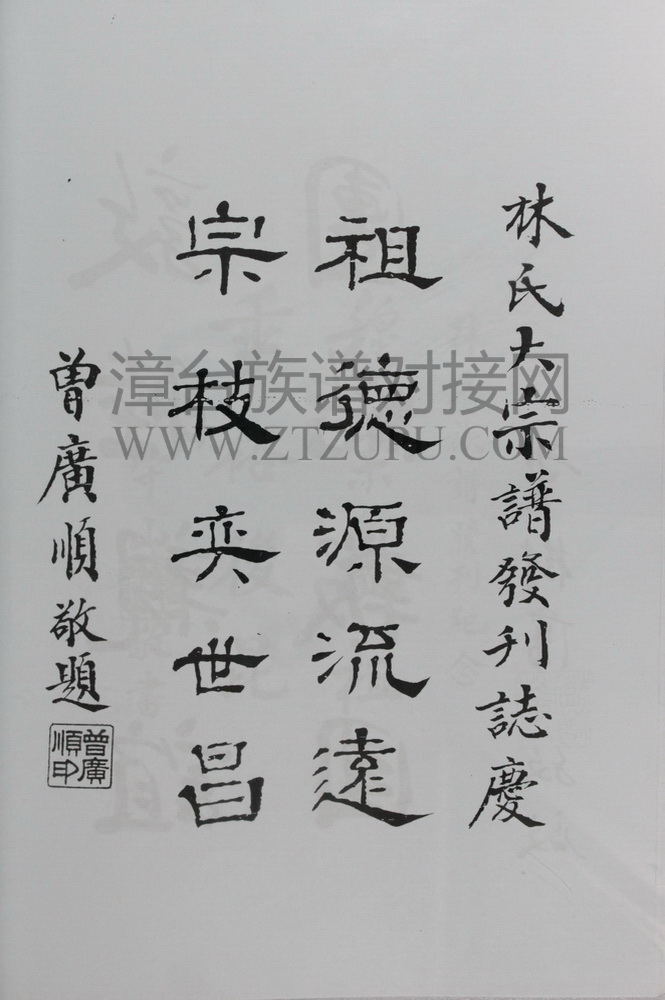 林氏大宗譜發刊誌慶
祖德源流遠
宗枝奕世昌
曾廣順敬題
曾廣順印
漳台族谱对接网
WWW.ZTZUPU.COM